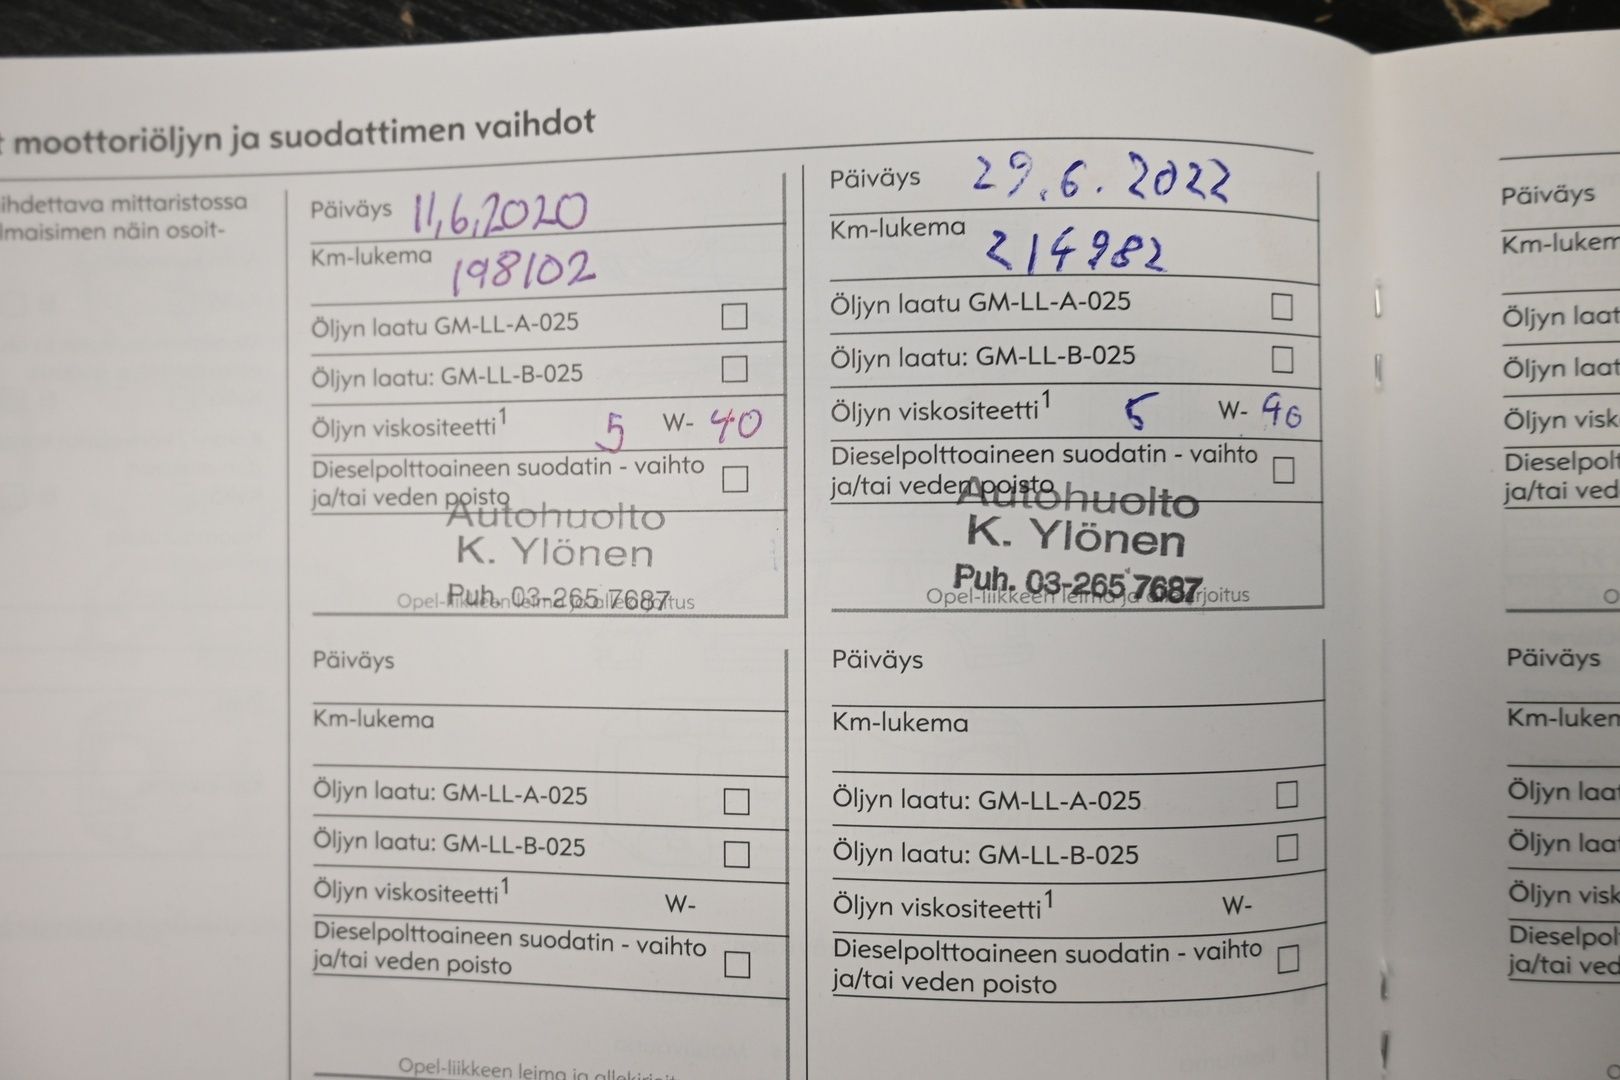 t moottoriöljyn ja suodattimen vaihdot
ihdettava mittaristossa
lmaisimen näin osoit-
Päiväys 11,6,2020
Km-lukema 198102
Öljyn laatu GM-LL-A-025
Öljyn laatu: GM-LL-B-025
Öljyn viskositeetti1 5 W- 40
Dieselpolttoaineen suodatin - vaihto
ja/tai veden poisto
Autohuolto
K. Ylönen
Puh. 03-265 7687
Opel-liikkeen leima ja allekirjoitus
Päiväys
Km-lukema
Öljyn laatu: GM-LL-A-025
Öljyn laatu: GM-LL-B-025
Öljyn viskositeetti1 W-
Dieselpolttoaineen suodatin - vaihto
ja/tai veden poisto
Opel-liikkeen leima ja
Päiväys 29.6.2022
Km-lukema 214982
Öljyn laatu GM-LL-A-025
Öljyn laatu: GM-LL-B-025
Öljyn viskositeetti1 5 W- 40
Dieselpolttoaineen suodatin - vaihto
ja/tai veden poisto
Autohuolto
K. Ylönen
Puh. 03-265 7687
Opel-liikkeen leima ja allekirjoitus
Päiväys
Km-lukema
Öljyn laatu: GM-LL-A-025
Öljyn laatu: GM-LL-B-025
Öljyn viskositeetti1 W-
Dieselpolttoaineen suodatin - vaihto
ja/tai veden poisto
Päiväys
Km-lukem
Öljyn laat
Öljyn laat
Öljyn visk
Dieselpolt
ja/tai ved
O
Päiväys
Km-luken
Öljyn laat
Öljyn laat
Öljyn visk
Dieselpol
ja/tai ved